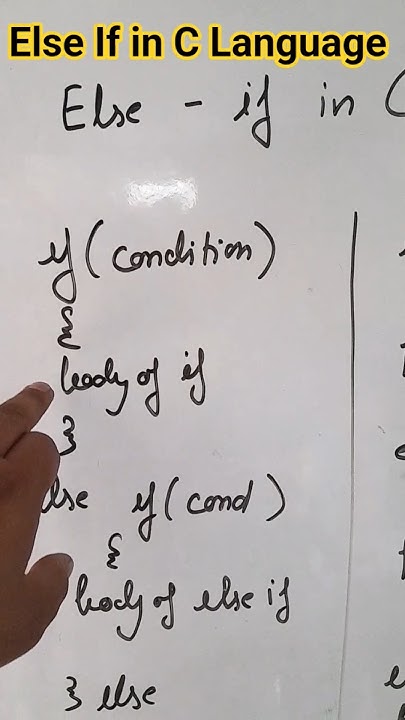 Else If in C Language
Else - if in C
if (condition)
{
body of if
}
else if (cond)
{
body of else if
} else